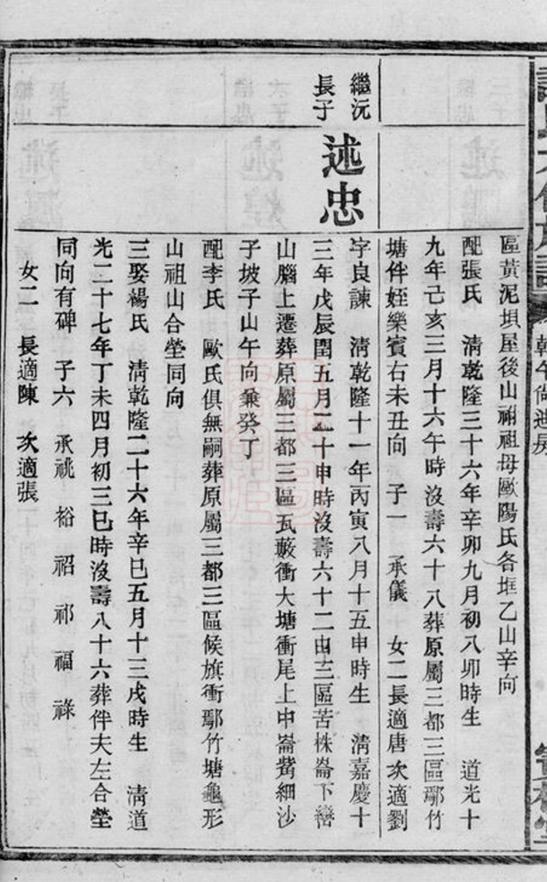 乾午尚迪房
區黃泥坝屋後山祔祖母歐陽氏各塚乙山辛向
配張氏 清乾隆三十六年辛卯九月初八卯時生 道光十
九年己亥三月十六午時沒壽六十八葬原屬三都三區鄢竹
塘伴姪樂賓右未丑向 子一 承儀 女二長適唐 次適劉
繼沅
長子
述忠
字良諫 清乾隆十一年丙寅八月十五申時生 清嘉慶十
三年戊辰閏五月二十申時沒壽六十二由三區苦株崙下巒
山腦上遷葬原屬三都三區瓦藪衝大塘衝尾上中崙嘴細沙
子坡子山午向兼癸丁
配李氏 歐氏俱無嗣葬原屬三都三區候旗衝鄢竹塘龜形
山祖山合塋同向
三娶楊氏 清乾隆二十六年辛巳五月十三戌時生 清道
光二十七年丁未四月初三巳時沒壽八十六葬伴夫左合塋
同向有碑 子六 承祧 裕 祒 祁 福 祿
女二 長適陳 次適張